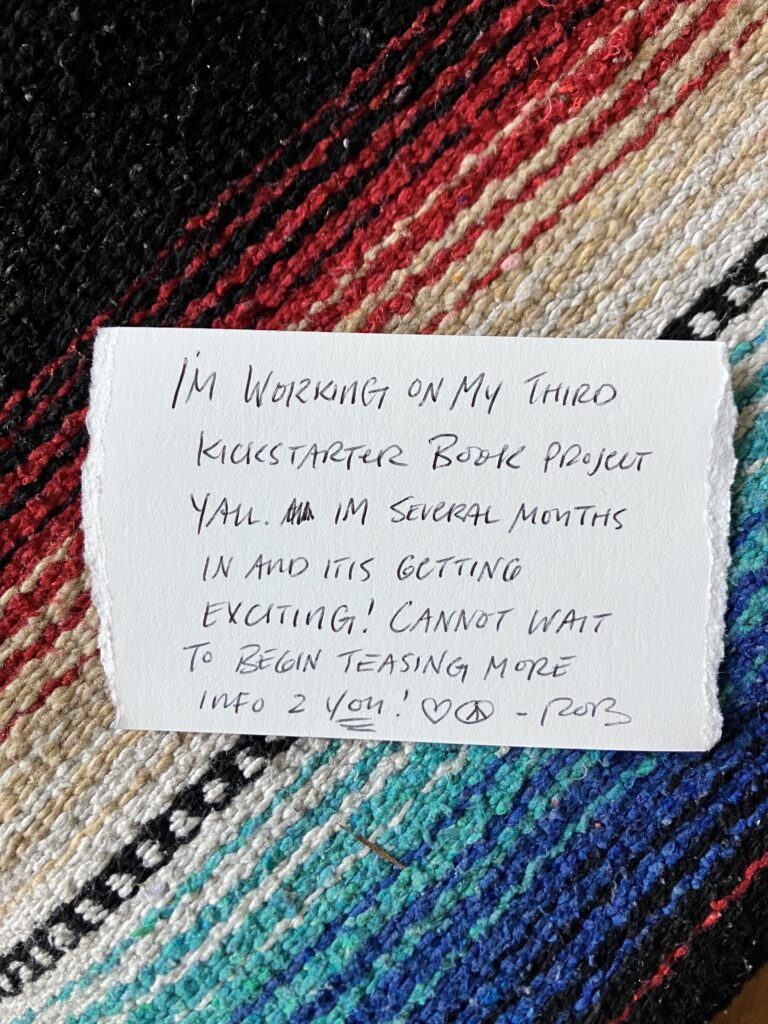 I'M WORKING ON MY THIRD
KICKSTARTER BOOK PROJECT
YALL. IM SEVERAL MONTHS
IN AND ITIS GETTING
EXCITING! CANNOT WAIT
TO BEGIN TEASING MORE
INFO 2 YOU! ♡☮ - ROB